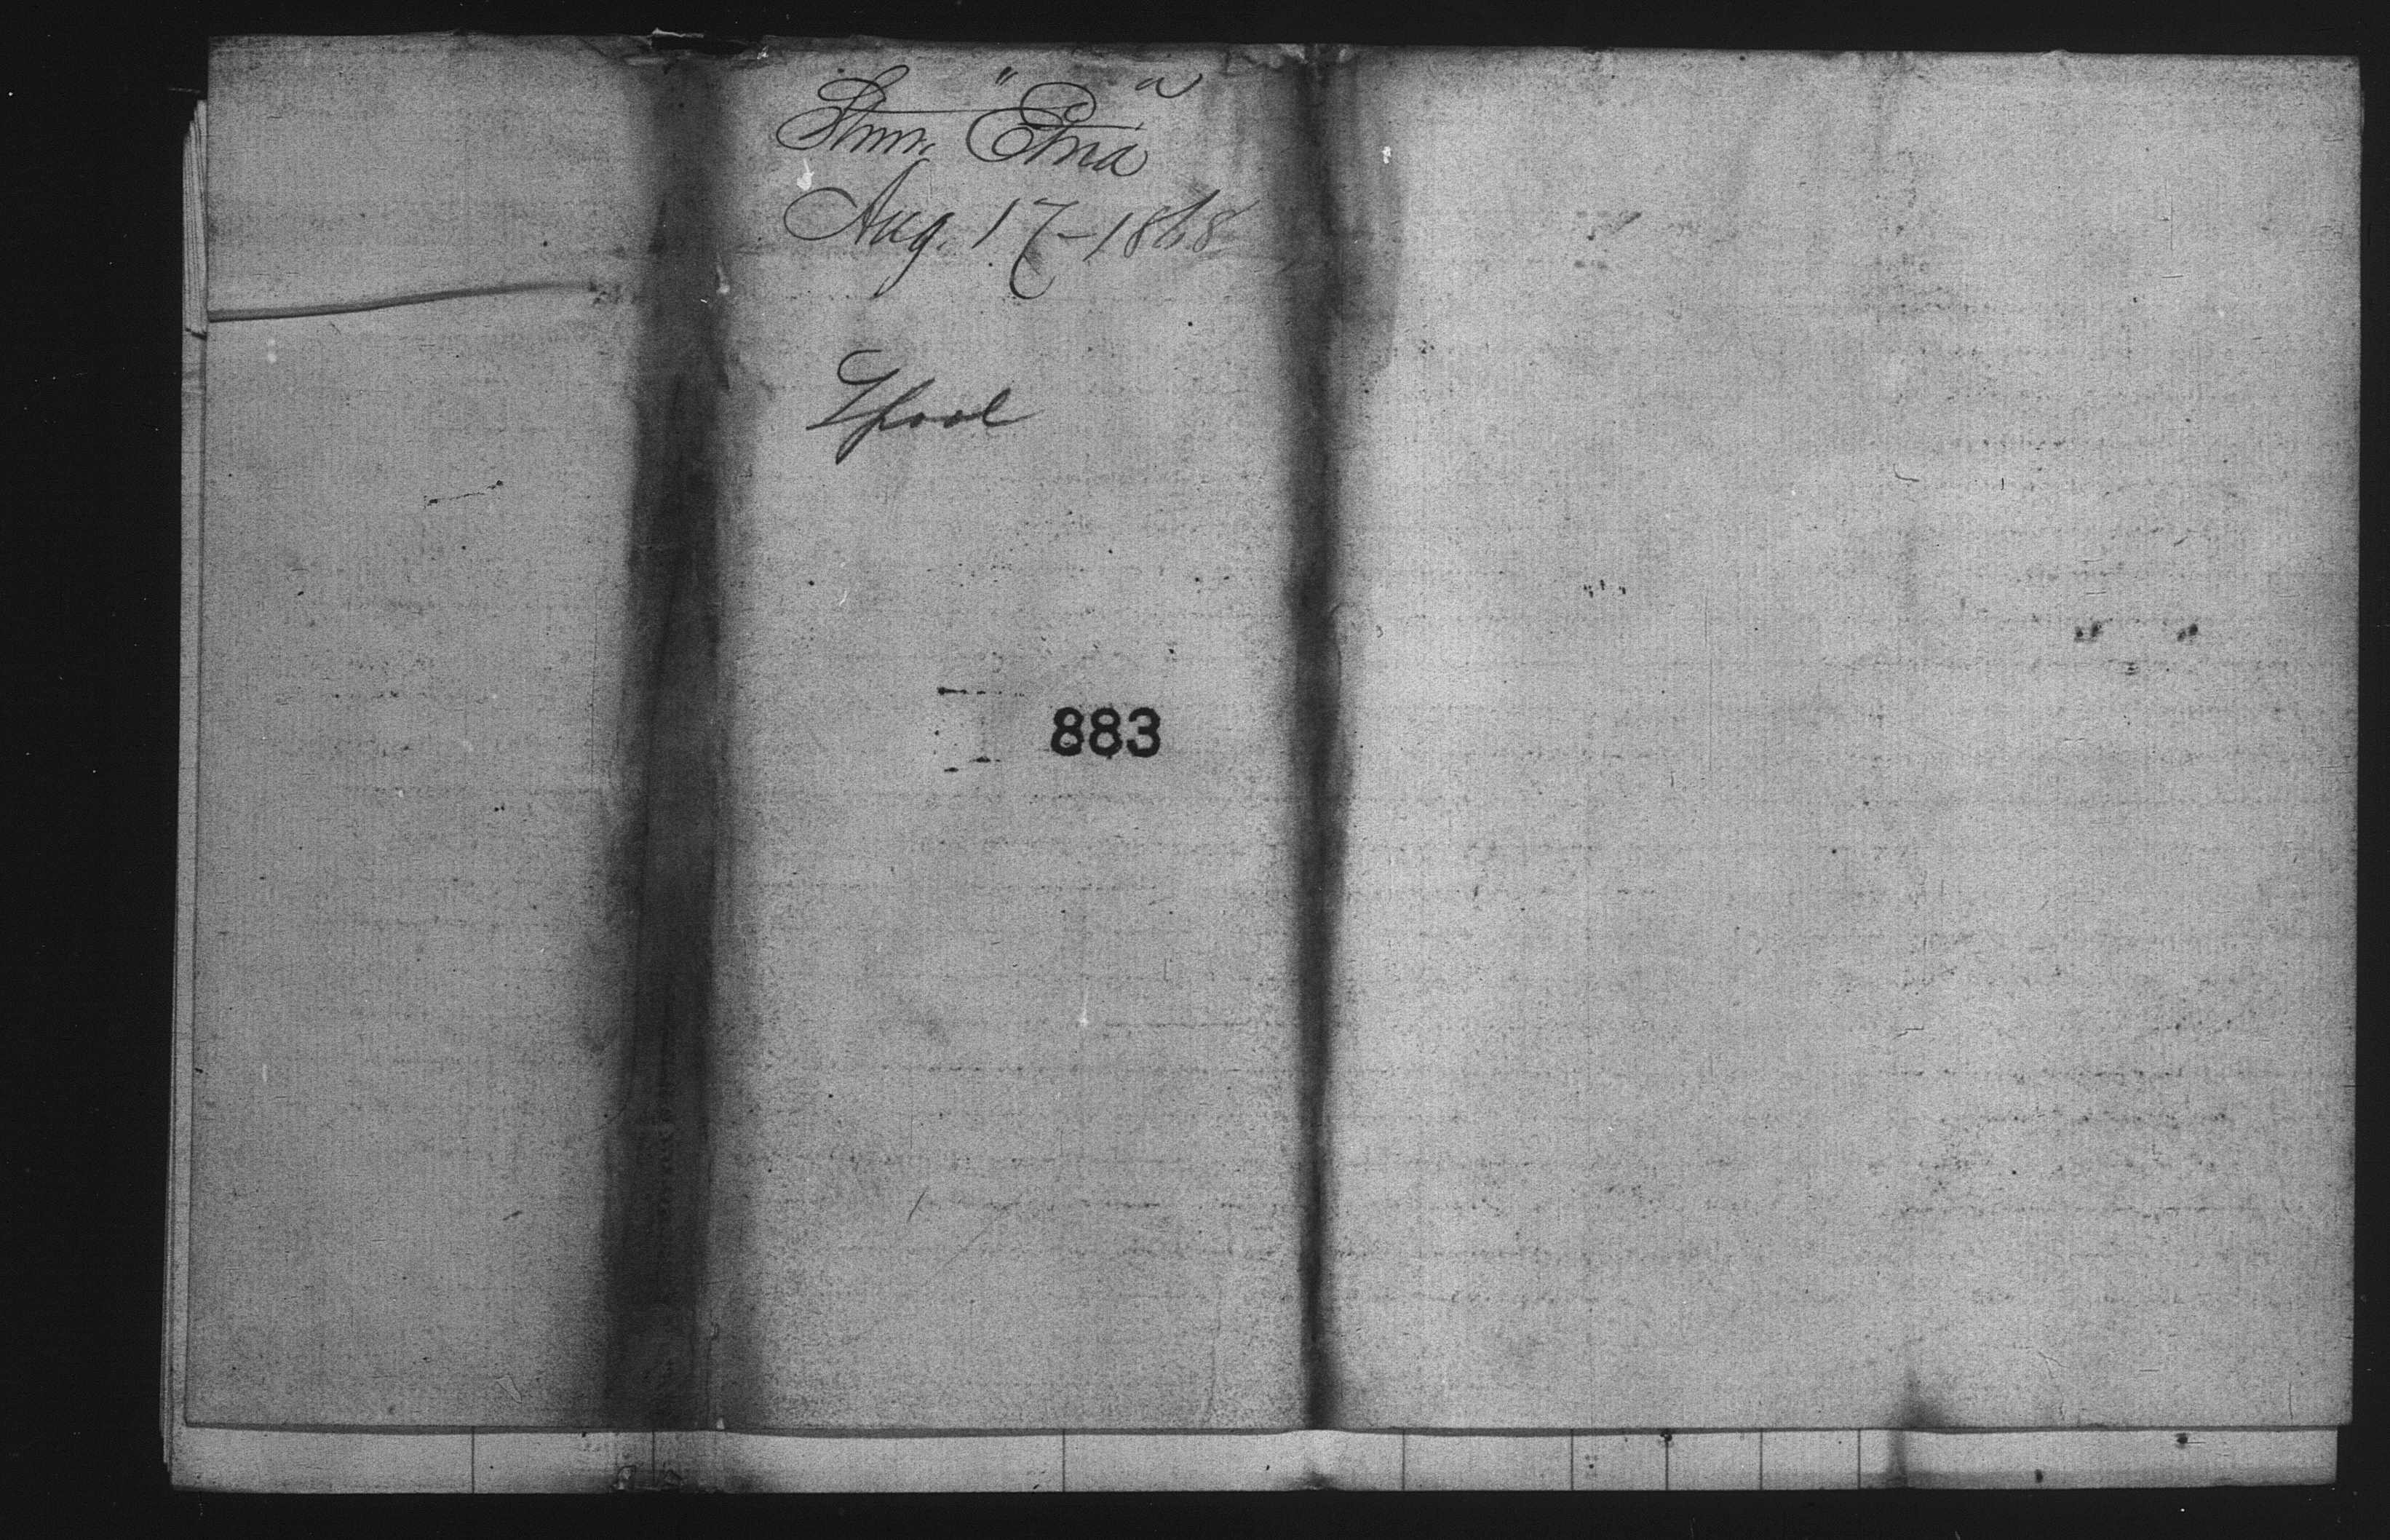 Stmr. "Etna"
Aug. 17-1868
Lpool
883